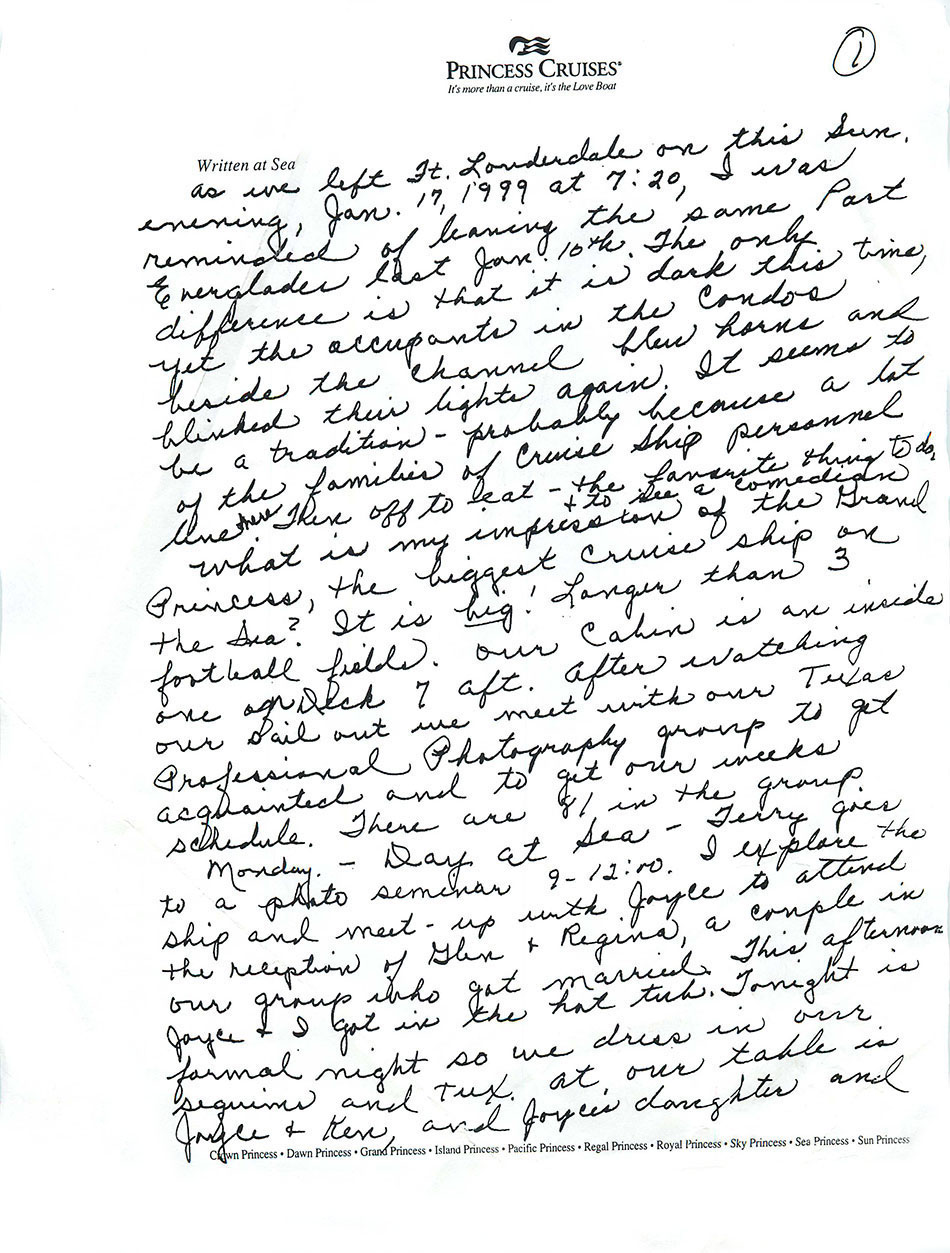 1
PRINCESS CRUISES®
It's more than a cruise, it's the Love Boat
Written at Sea
as we left Ft. Louderdale on this Sun.
evening, Jan. 17, 1999 at 7:20, I was
reminded of leaving the same Port
Everglades last Jan. 10th. The only
difference is that it is dark this time,
yet the occupants in the condos
beside the channel blew horns and
blinked their lights again. It seems to
be a tradition - probably because a lot
of the families of Cruise Ship personnel
live there. Then off to eat - the favorite thing to do,
+ to see a comedian
What is my impression of the Grand
Princess, the biggest cruise ship on
the Sea? It is big! Longer than 3
football fields. Our Cabin is an inside
one on Deck 7 aft. After watching
our Sail out we meet with our Texas
Professional Photography group to get
acquainted and to get our weeks
schedule. There are 81 in the group.
Monday. - Day at Sea - Terry goes
to a photo seminar 9-12:00. I explore the
ship and meet-up with Joyce to attend
the reception of Glen + Regina, a couple in
our group who got married. This afternoon
Joyce + I got in the hot tub. Tonight is
formal night so we dress in our
sequins and Tux. At our table is
Joyce + Ken, and Joyce's daughter and
Crown Princess • Dawn Princess • Grand Princess • Island Princess • Pacific Princess • Regal Princess • Royal Princess • Sky Princess • Sea Princess • Sun Princess